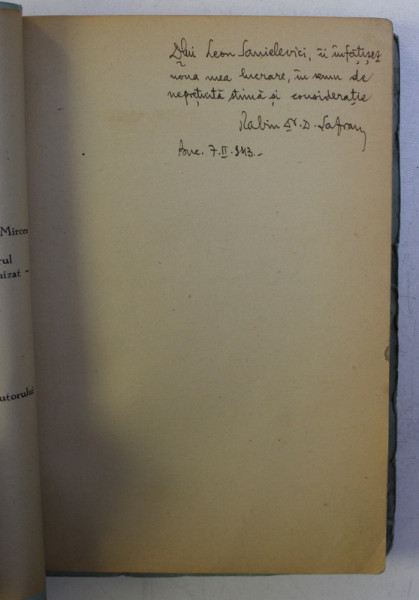 Dlui Leon Sanielevici, îi înfățișez
noua mea lucrare, în semn de
neprețuită stimă și considerație
Rabin Dr. D. Safran
Buc. 7.II.943.-
Miron
rul
nizat -
utorului